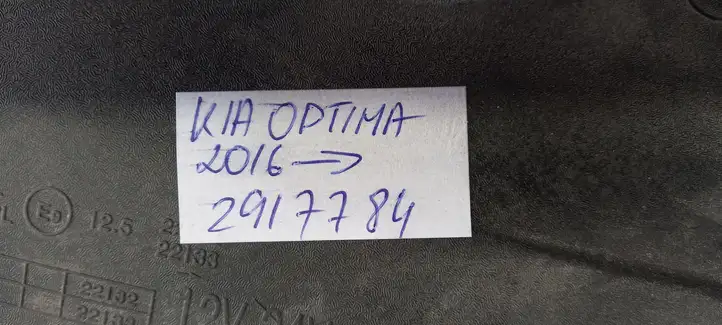 KIA OPTIMA
2016 →
2917784
E9 12.5
22133
22132
12V